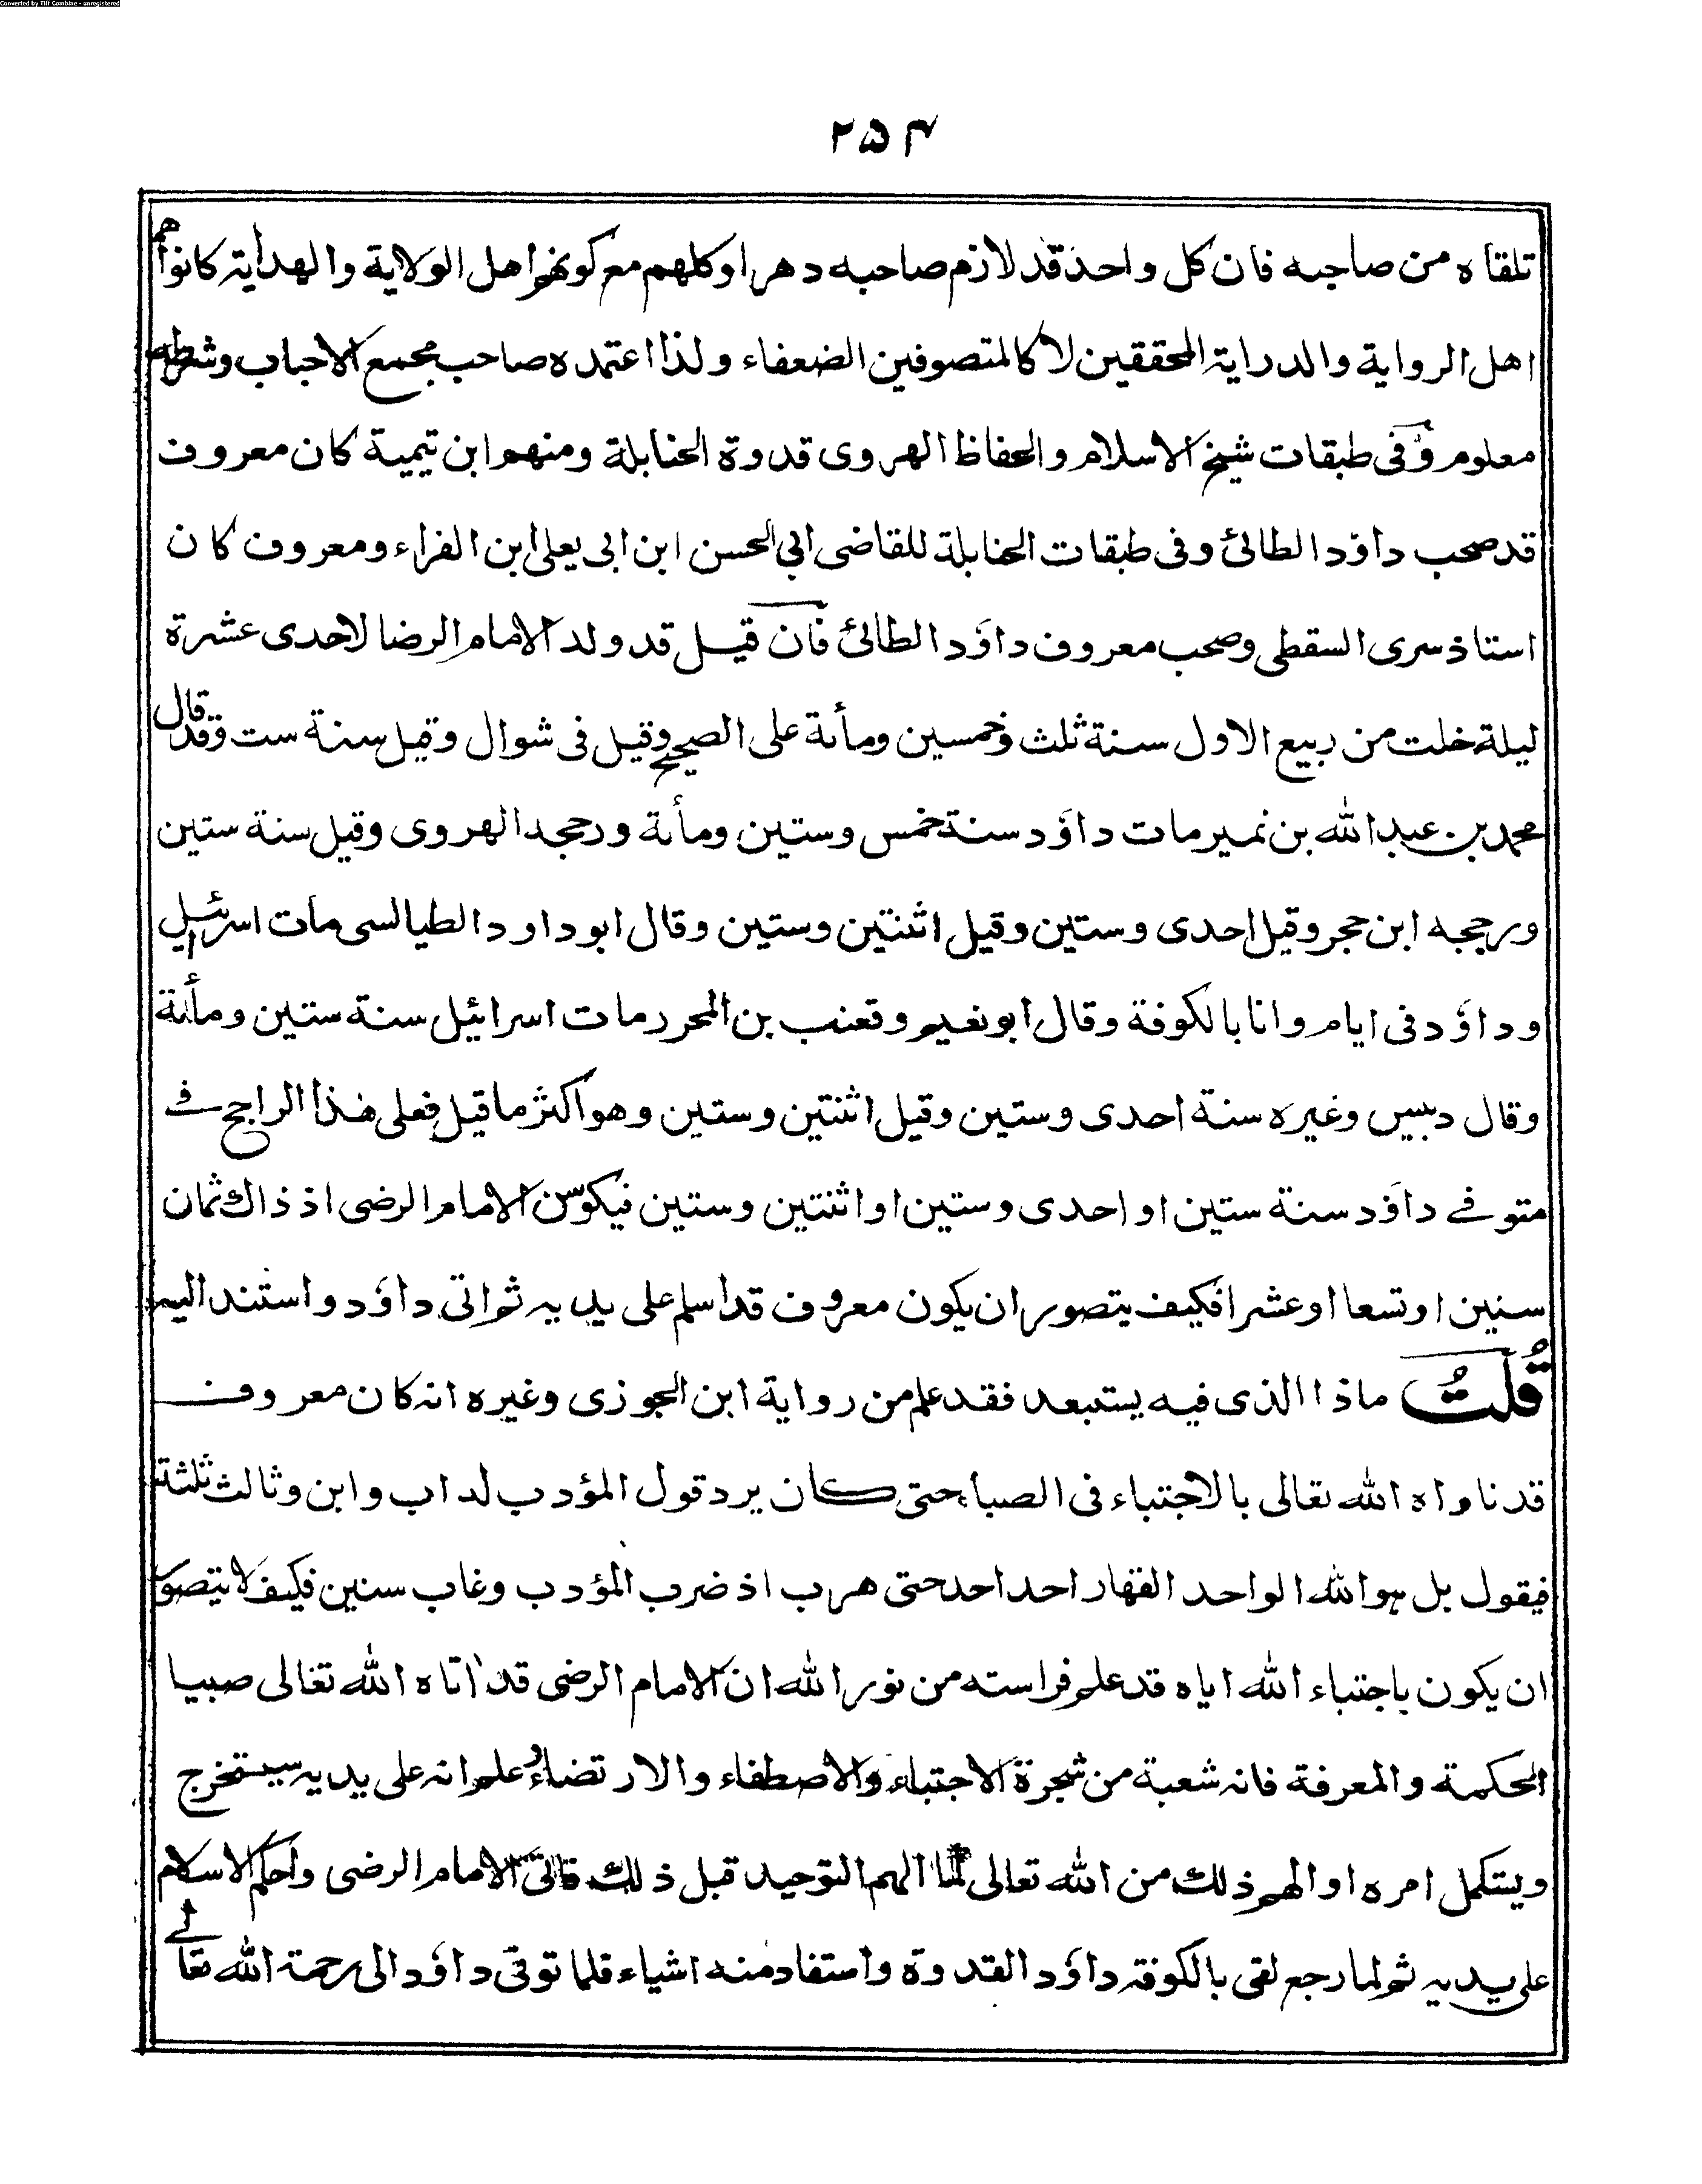 Converted by Tiff Combine - unregistered
۲۵۴
تلقاه من صاحبه فان كل واحد قد لازم صاحبه دهرا وكلهم مع كونهم اهل الولاية والهداية كانوا هم
اهل الرواية والدراية المحققين لا كالمتصوفين الضعفاء ولذا اعتمده صاحب مجمع الاحباب وشرطه
معلوم وفى طبقات شيخ الاسلام والحفاظ الهروى قدوة الحنابلة ومنهم ابن تيمية كان معروف
قد صحب داؤد الطائئ وفى طبقات الحنابلة للقاضى ابي الحسن ابن ابى يعلى ابن الفراء ومعروف كان
استاذ سرى السقطى وصحب معروف داؤد الطائئ فان قيل قد ولد الامام الرضا لاحدى عشرة
ليلة خلت من ربيع الاول سنة ثلث وخمسين ومأئة على الصحيح وقيل فى شوال وقيل سنة ست وقد قال
محمد بن عبد الله بن نمير مات داؤد سنة خمس وستين ومأئة ورجحه الهروى وقيل سنة ستين
ورجحه ابن حجر وقيل احدى وستين وقيل اثنتين وستين وقال ابو داود الطيالسى مات اسرائيل
وداؤد فى ايام وانا بالكوفة وقال ابو نعيم وقعنب بن المحرر مات اسرائيل سنة ستين ومأئة
وقال دبيس وغيره سنة احدى وستين وقيل اثنتين وستين وهو اكثر ما قيل فعلى هذا الراجح فى
متوفے داؤد سنة ستين او احدى وستين او اثنتين وستين فيكون سن الامام الرضى اذ ذاك ثمان
سنين او تسعا او عشرا فكيف يتصور ان يكون معروف قد اسلم على يديه ثم اتى داؤد واستند اليه
قُلْتُ ماذا الذى فيه يستبعد فقد علم من رواية ابن الجوزى وغيره انه كان معروف
قد ناداه الله تعالى بالاجتباء فى الصبا حتى كان يرد قول المؤدب له اب وابن وثالث ثلثة
فيقول بل هو الله الواحد القهار احد احد حتى هرب اذ ضرب المؤدب وغاب سنين فكيف لا يتصور
ان يكون باجتباء الله اياه قد علم فراسته من نور الله ان الامام الرضى قد اتاه الله تعالى صبيا
الحكمة والمعرفة فانه شعبة من شجرة الاجتباء والاصطفاء والارتضاء وعلم انه على يديه سيستخرج
ويستكمل امره او الهم ذلك من الله تعالى كما الهم التوحيد قبل ذلك فاتى الامام الرضى واحكم الاسلام
على يديه ثم لما رجع لقى بالكوفة داؤد القدوة واستفاد منه اشياء فلما توفى داؤد الى رحمة الله تعالے